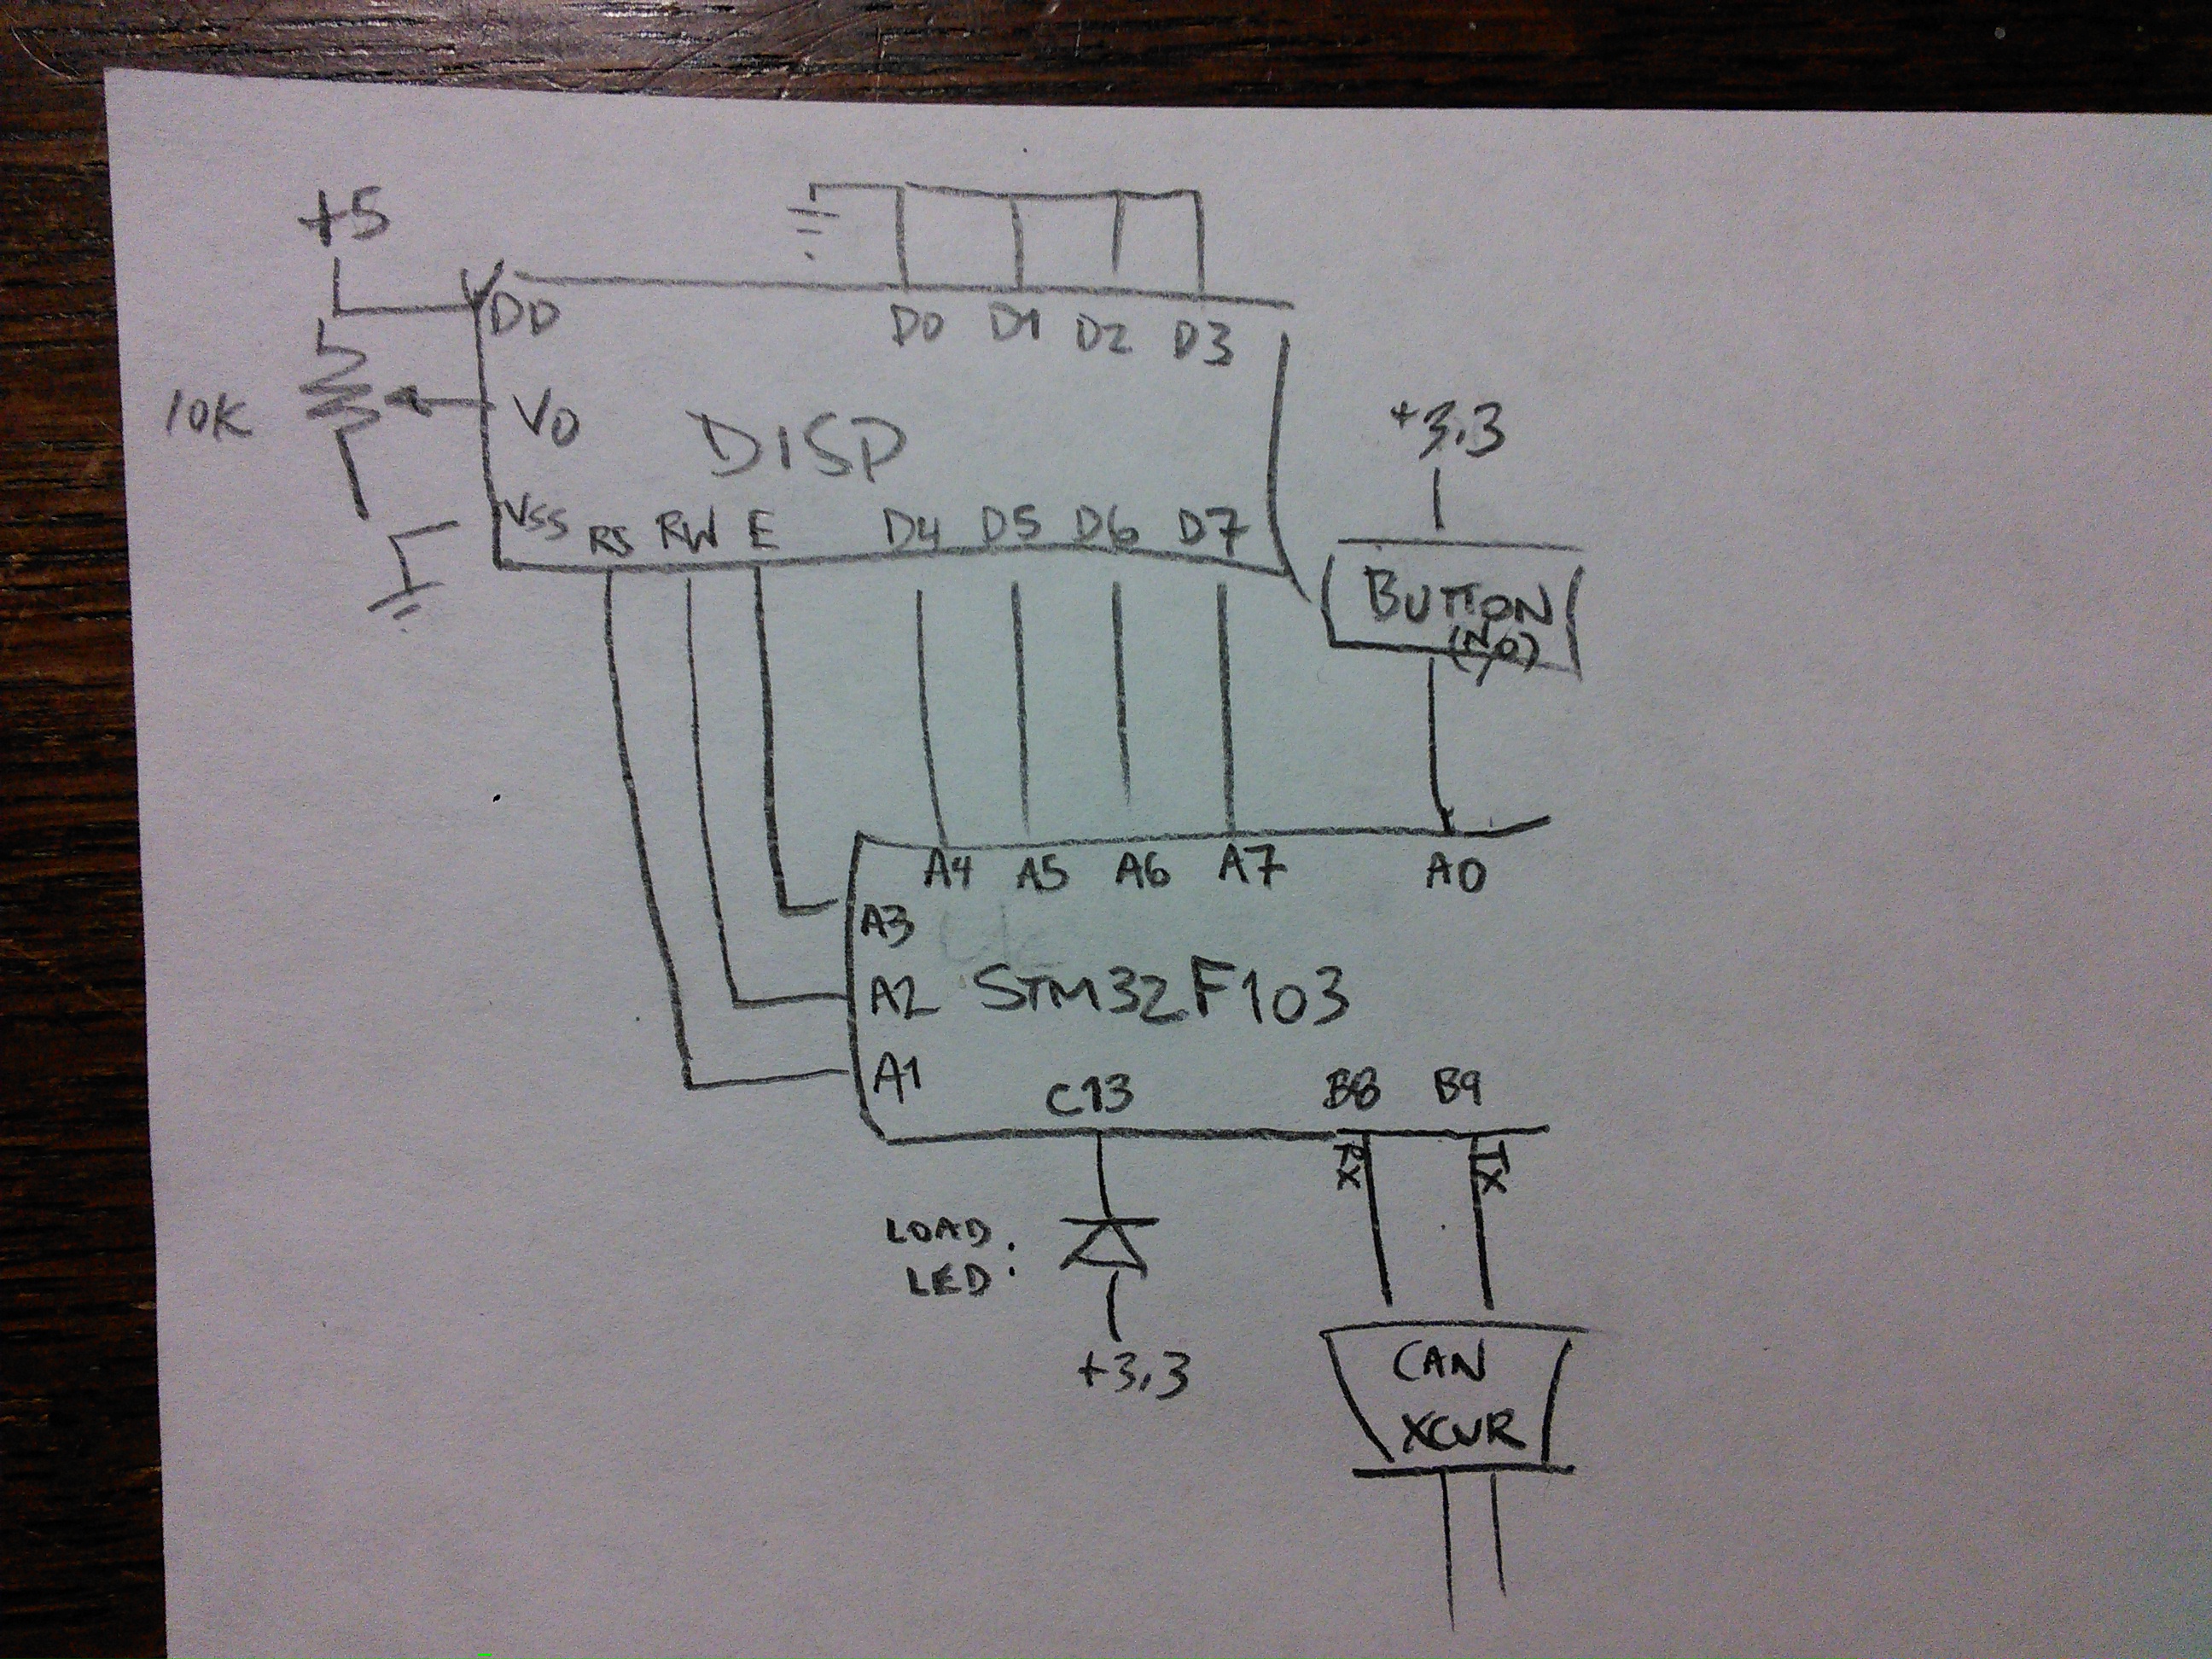 +5
VDD
D0 D1 D2 D3
10K
V0
DISP
+3.3
VSS RS RW E D4 D5 D6 D7
BUTTON
(N/O)
A4 A5 A6 A7 A0
A3
A2 STM32F103
A1
C13 B8 B9
TX
LOAD
LED:
+3.3
CAN
XCVR